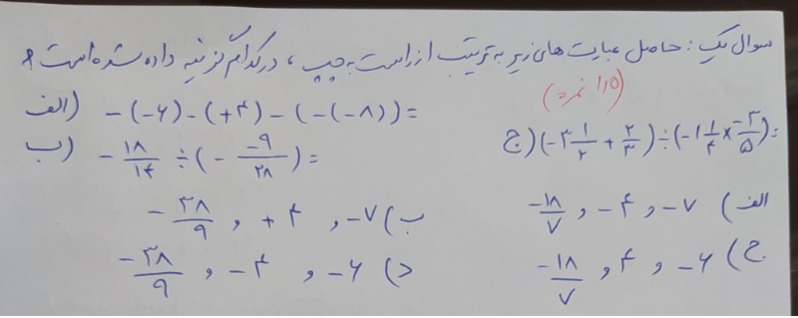 سوال یک: حاصل عبارت های زیر به ترتیب از راست به چپ، در کدام گزینه داده شده است؟
(۱,۵ نمره)
الف) -(-۶)-(+۴)-(-(-۸))=
ب) -۱۸/۱۴ ÷ (- -۹/۲۸)=
ج) (-۳ ۱/۲ + ۲/۳) ÷ (-۱ ۱/۴ × -۳/۵)=
الف) -۷ و -۴ و -۱۸/۷
ب) -۷ , +۴ , -۳۸/۹
ج) -۶ و ۴ و -۱۸/۷
د) -۶ , -۴ , -۳۸/۹